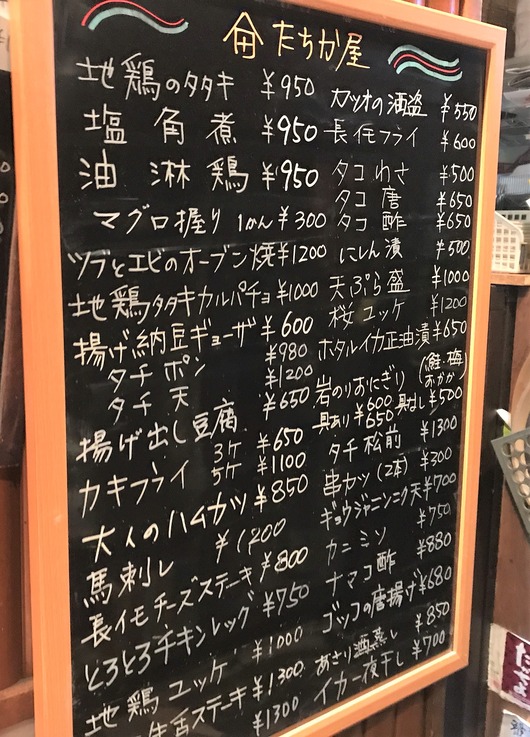 たちか屋
地鶏のタタキ ¥950
塩角煮 ¥950
油淋鶏 ¥950
マグロ握り 1かん ¥300
ツブとエビのオーブン焼 ¥1200
地鶏タタキカルパチョ ¥1000
揚げ納豆ギョーザ ¥600
タチポン ¥980
タチ天 ¥1200
揚げ出し豆腐 ¥650
カキフライ 3ケ ¥650
5ケ ¥1100
大人のハムカツ ¥850
馬刺し ¥1200
長イモチーズステーキ ¥800
とろとろチキンレッグ ¥750
地鶏ユッケ ¥1000
ステーキ ¥1300
¥1300
カツオの酒盗 ¥550
長イモフライ ¥600
タコわさ ¥500
タコ唐 ¥650
タコ酢 ¥650
にしん漬 ¥500
天ぷら盛 ¥1000
桜ユッケ ¥1200
ホタルイカ正油漬 ¥650
岩のりおにぎり (鮭・梅
おかか)
具あり ¥600 具なし ¥500
650
タチ松前 ¥1300
串カツ(2本) ¥300
ギョウジャニンニク天 ¥700
カニミソ ¥750
ナマコ酢 ¥880
ゴッコの唐揚げ ¥680
あさり酒蒸し ¥850
イカ一夜干し ¥700